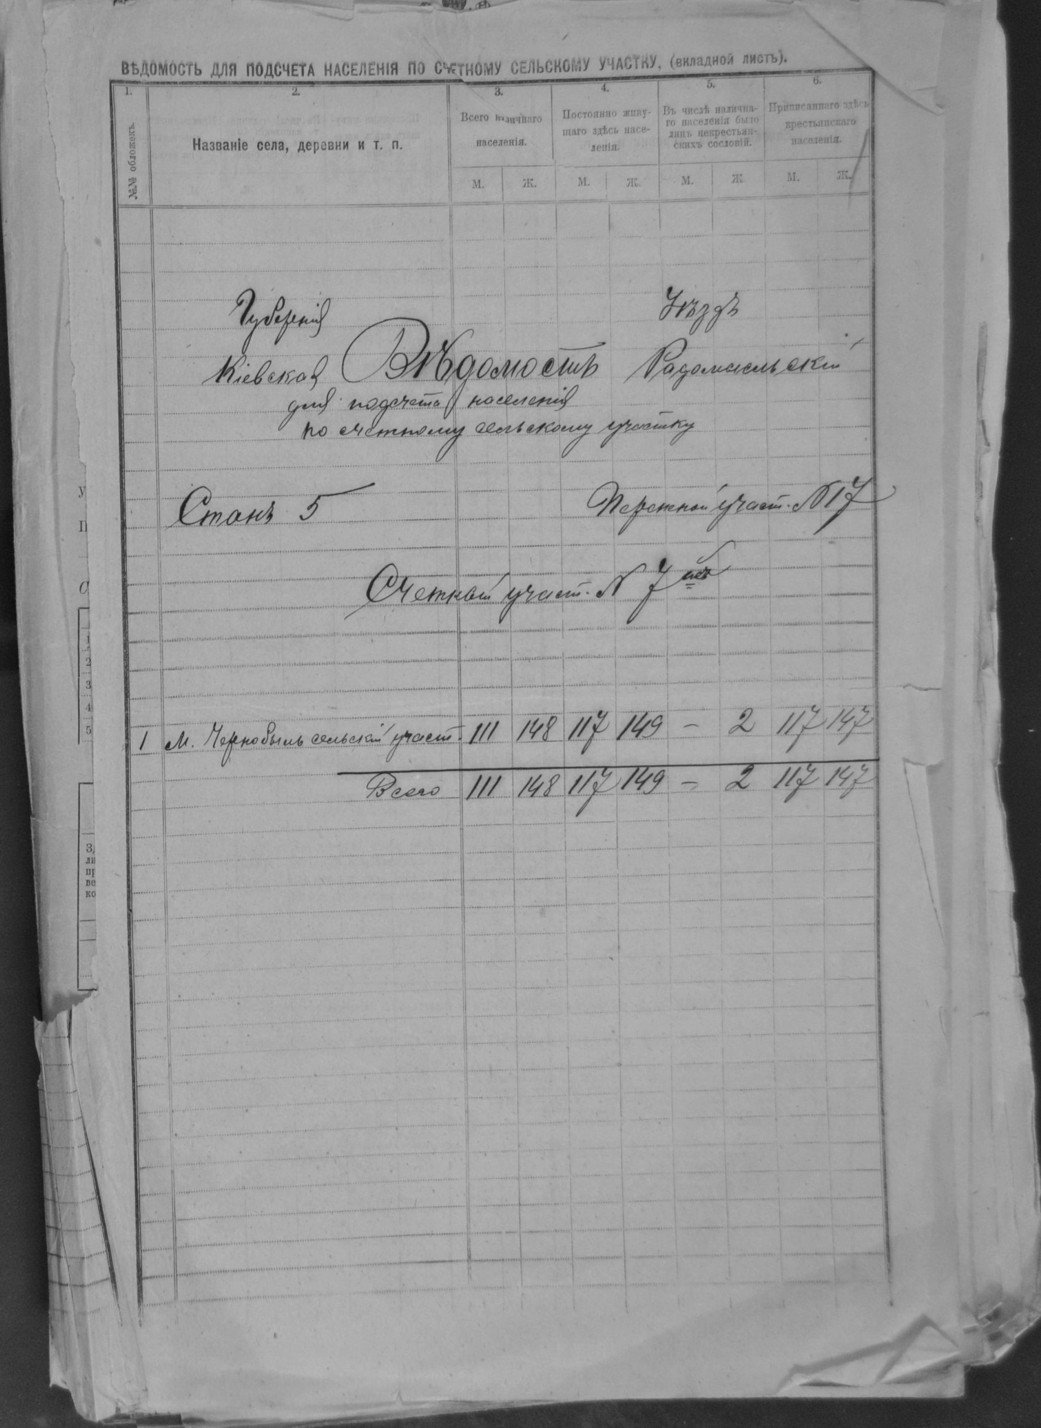 ВѢДОМОСТЬ ДЛЯ ПОДСЧЕТА НАСЕЛЕНІЯ ПО СЧЕТНОМУ СЕЛЬСКОМУ УЧАСТКУ, (вкладной листъ).
1. 2. 3. 4. 5. 6.
№№ обложекъ.
Названіе села, деревни и т. п.
Всего наличнаго населенія.
Постоянно живущаго здѣсь населенія.
Въ числѣ наличнаго населенія было лицъ некрестьянскихъ сословій.
Приписаннаго здѣсь крестьянскаго населенія.
М. Ж. М. Ж. М. Ж. М. Ж.
Губернія Уѣздъ
Кіевская Вѣдомость Радомысльскій
для подсчета населенія
по счетному сельскому участку
Станъ 5 Перепной участ. № 17
Счетный участ. № 7
1 М. Чернобыль сельскій участ. 111 148 117 149 – 2 117 147
Всего 111 148 117 149 – 2 117 147